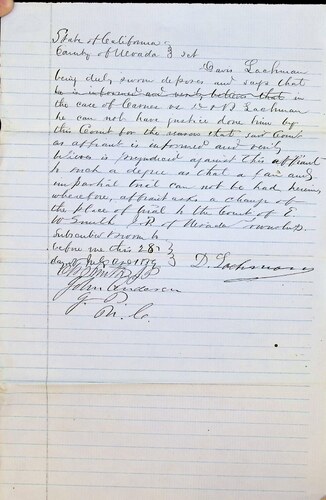 State of California
County of Nevada } sct
Davis Lachman
being duly sworn deposes and says that
he is informed and verily believes that in
the case of Garver vs D Lachman
he can not have justice done him by
this Court for the reason that said Court
as affiant is informed and verily
believes is prejudiced against this affiant
to such a degree as that a fair and
impartial trial can not be had herein
wherefore, affiant asks a change of
the place of trial to the Court of E
W Smith J.P. of Nevada Township.
Subscribed & sworn to
before me this 28 }
day of July }
D. Lachman
John Anderson
J. P.
N. C.